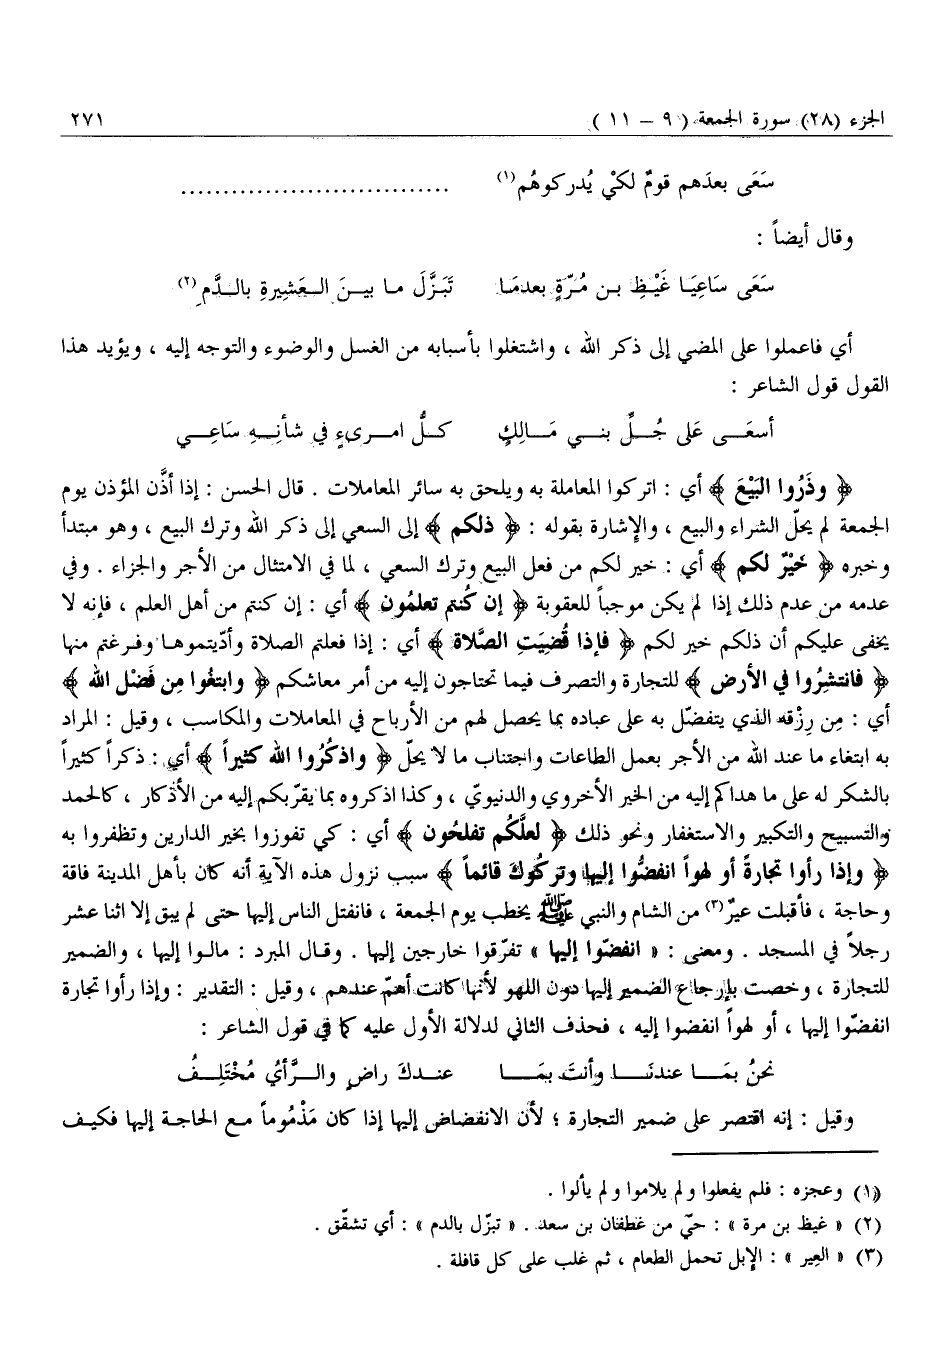 الجزء (٢٨) سورة الجمعة (٩ - ١١) ٢٧١
سَعَى بعدَهم قومٌ لكيْ يُدركوهُم(١) ...............................
وقال أيضاً :
سَعَى سَاعِيَا غَيْظِ بن مُرّةٍ بعدمَا تَبَزَّلَ ما بينَ العَشِيرةِ بالدَّمِ(٢)
أي فاعملوا على المضي إلى ذكر الله ، واشتغلوا بأسبابه من الغسل والوضوء والتوجه إليه ، ويؤيد هذا
القول قول الشاعر :
أسعَى عَلى جُلِّ بني مَالِكٍ كلُّ امرىءٍ في شأنِهِ سَاعِي
﴿ وذَرُوا البَيْعَ ﴾ أي : اتركوا المعاملة به ويلحق به سائر المعاملات . قال الحسن : إذا أذَّن المؤذن يوم
الجمعة لم يحلّ الشراء والبيع ، والإشارة بقوله : ﴿ ذلكم ﴾ إلى السعي إلى ذكر الله وترك البيع ، وهو مبتدأ
وخبره ﴿ خَيْرٌ لكم ﴾ أي : خير لكم من فعل البيع وترك السعي ، لما في الامتثال من الأجر والجزاء . وفي
عدمه من عدم ذلك إذا لم يكن موجباً للعقوبة ﴿ إن كُنتم تعلمُون ﴾ أي : إن كنتم من أهل العلم ، فإنه لا
يخفى عليكم أن ذلكم خير لكم ﴿ فإذا قُضيَتِ الصَّلاة ﴾ أي : إذا فعلتم الصلاة وأدّيتموها وفرغتم منها
﴿ فانتشِرُوا في الأرض ﴾ للتجارة والتصرف فيما تحتاجون إليه من أمر معاشكم ﴿ وابتغُوا مِن فَضْل الله ﴾
أي : مِن رِزْقه الذي يتفضّل به على عباده بما يحصل لهم من الأرباح في المعاملات والمكاسب ، وقيل : المراد
به ابتغاء ما عند الله من الأجر بعمل الطاعات واجتناب ما لا يحلّ ﴿ واذكُرُوا الله كثيراً ﴾ أي : ذكراً كثيراً
بالشكر له على ما هداكم إليه من الخير الأخروي والدنيويّ ، وكذا اذكروه بما يقرّبكم إليه من الأذكار ، كالحمد
والتسبيح والتكبير والاستغفار ونحو ذلك ﴿ لعلَّكُم تفلحُون ﴾ أي : كي تفوزوا بخير الدارين وتظفروا به
﴿ وإذا رأوا تجارةً أو لهواً انفضُّوا إليها وتركُوكَ قائماً ﴾ سبب نزول هذه الآية أنه كان بأهل المدينة فاقة
وحاجة ، فأقبلت عيرٌ(٣) من الشام والنبي ﷺ يخطب يوم الجمعة ، فانفتل الناس إليها حتى لم يبق إلا اثنا عشر
رجلاً في المسجد . ومعنى : « انفضّوا إليها » تفرّقوا خارجين إليها . وقال المبرد : مالوا إليها ، والضمير
للتجارة ، وخصت بإرجاع الضمير إليها دون اللهو لأنها كانت أهمّ عندهم ، وقيل : التقدير : وإذا رأوا تجارة
انفضّوا إليها ، أو لهواً انفضوا إليه ، فحذف الثاني لدلالة الأول عليه كما في قول الشاعر :
نحنُ بمَا عندنَا وأنتَ بمَا عندكَ راضٍ والرَّأيُ مُخْتَلِفُ
وقيل : إنه اقتصر على ضمير التجارة ؛ لأن الانفضاض إليها إذا كان مَذْمُوماً مع الحاجة إليها فكيف
(١) وعجزه : فلم يفعلوا ولم يلاموا ولم يألوا .
(٢) « غيظ بن مرة » : حيّ من غطفان بن سعد . « تبزّل بالدم » : أي تشقّق .
(٣) « العِير » : الإبل تحمل الطعام ، ثم غلب على كل قافلة .